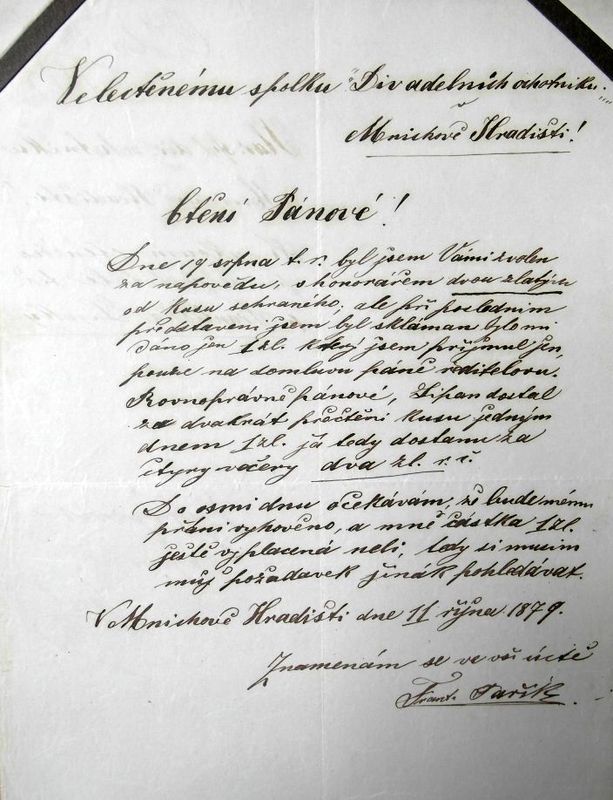 Velectěnému spolku "Divadelních ochotníku"
v
Mnichově Hradišti!
Ctění Pánové!
Dne 19 srpna t. r. byl jsem Vámi zvolen
za napovědu, s honorářem dvou zlatých
od kusu sehraného, ale při posledním
představení jsem byl sklámán bylo mi
dáno jen 1 zl. který jsem přijmul jen
pouze na domluvu páně ředitelovu.
Rovnoprávně pánové, Lipan dostal
za dvakrát přečtění kusu jedným
dnem 1 zl. já tedy dostanu za
čtyry večery dva zl. r. č.
Do osmi dnu očekávám, že bude mému
přání vyhověno, a mně částka 1 zl.
ještě vyplacená neli, tedy si musím
můj požadavek jinák pohledávat.
V Mnichově Hradišti dne 11 října 1879.
Znamenám se ve vší úctě
Frant. Pařík